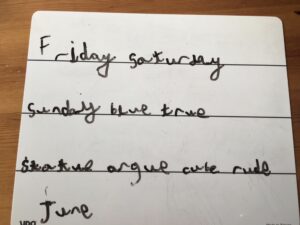 Friday saturday
sunday blue true
statue argue cube rude
June